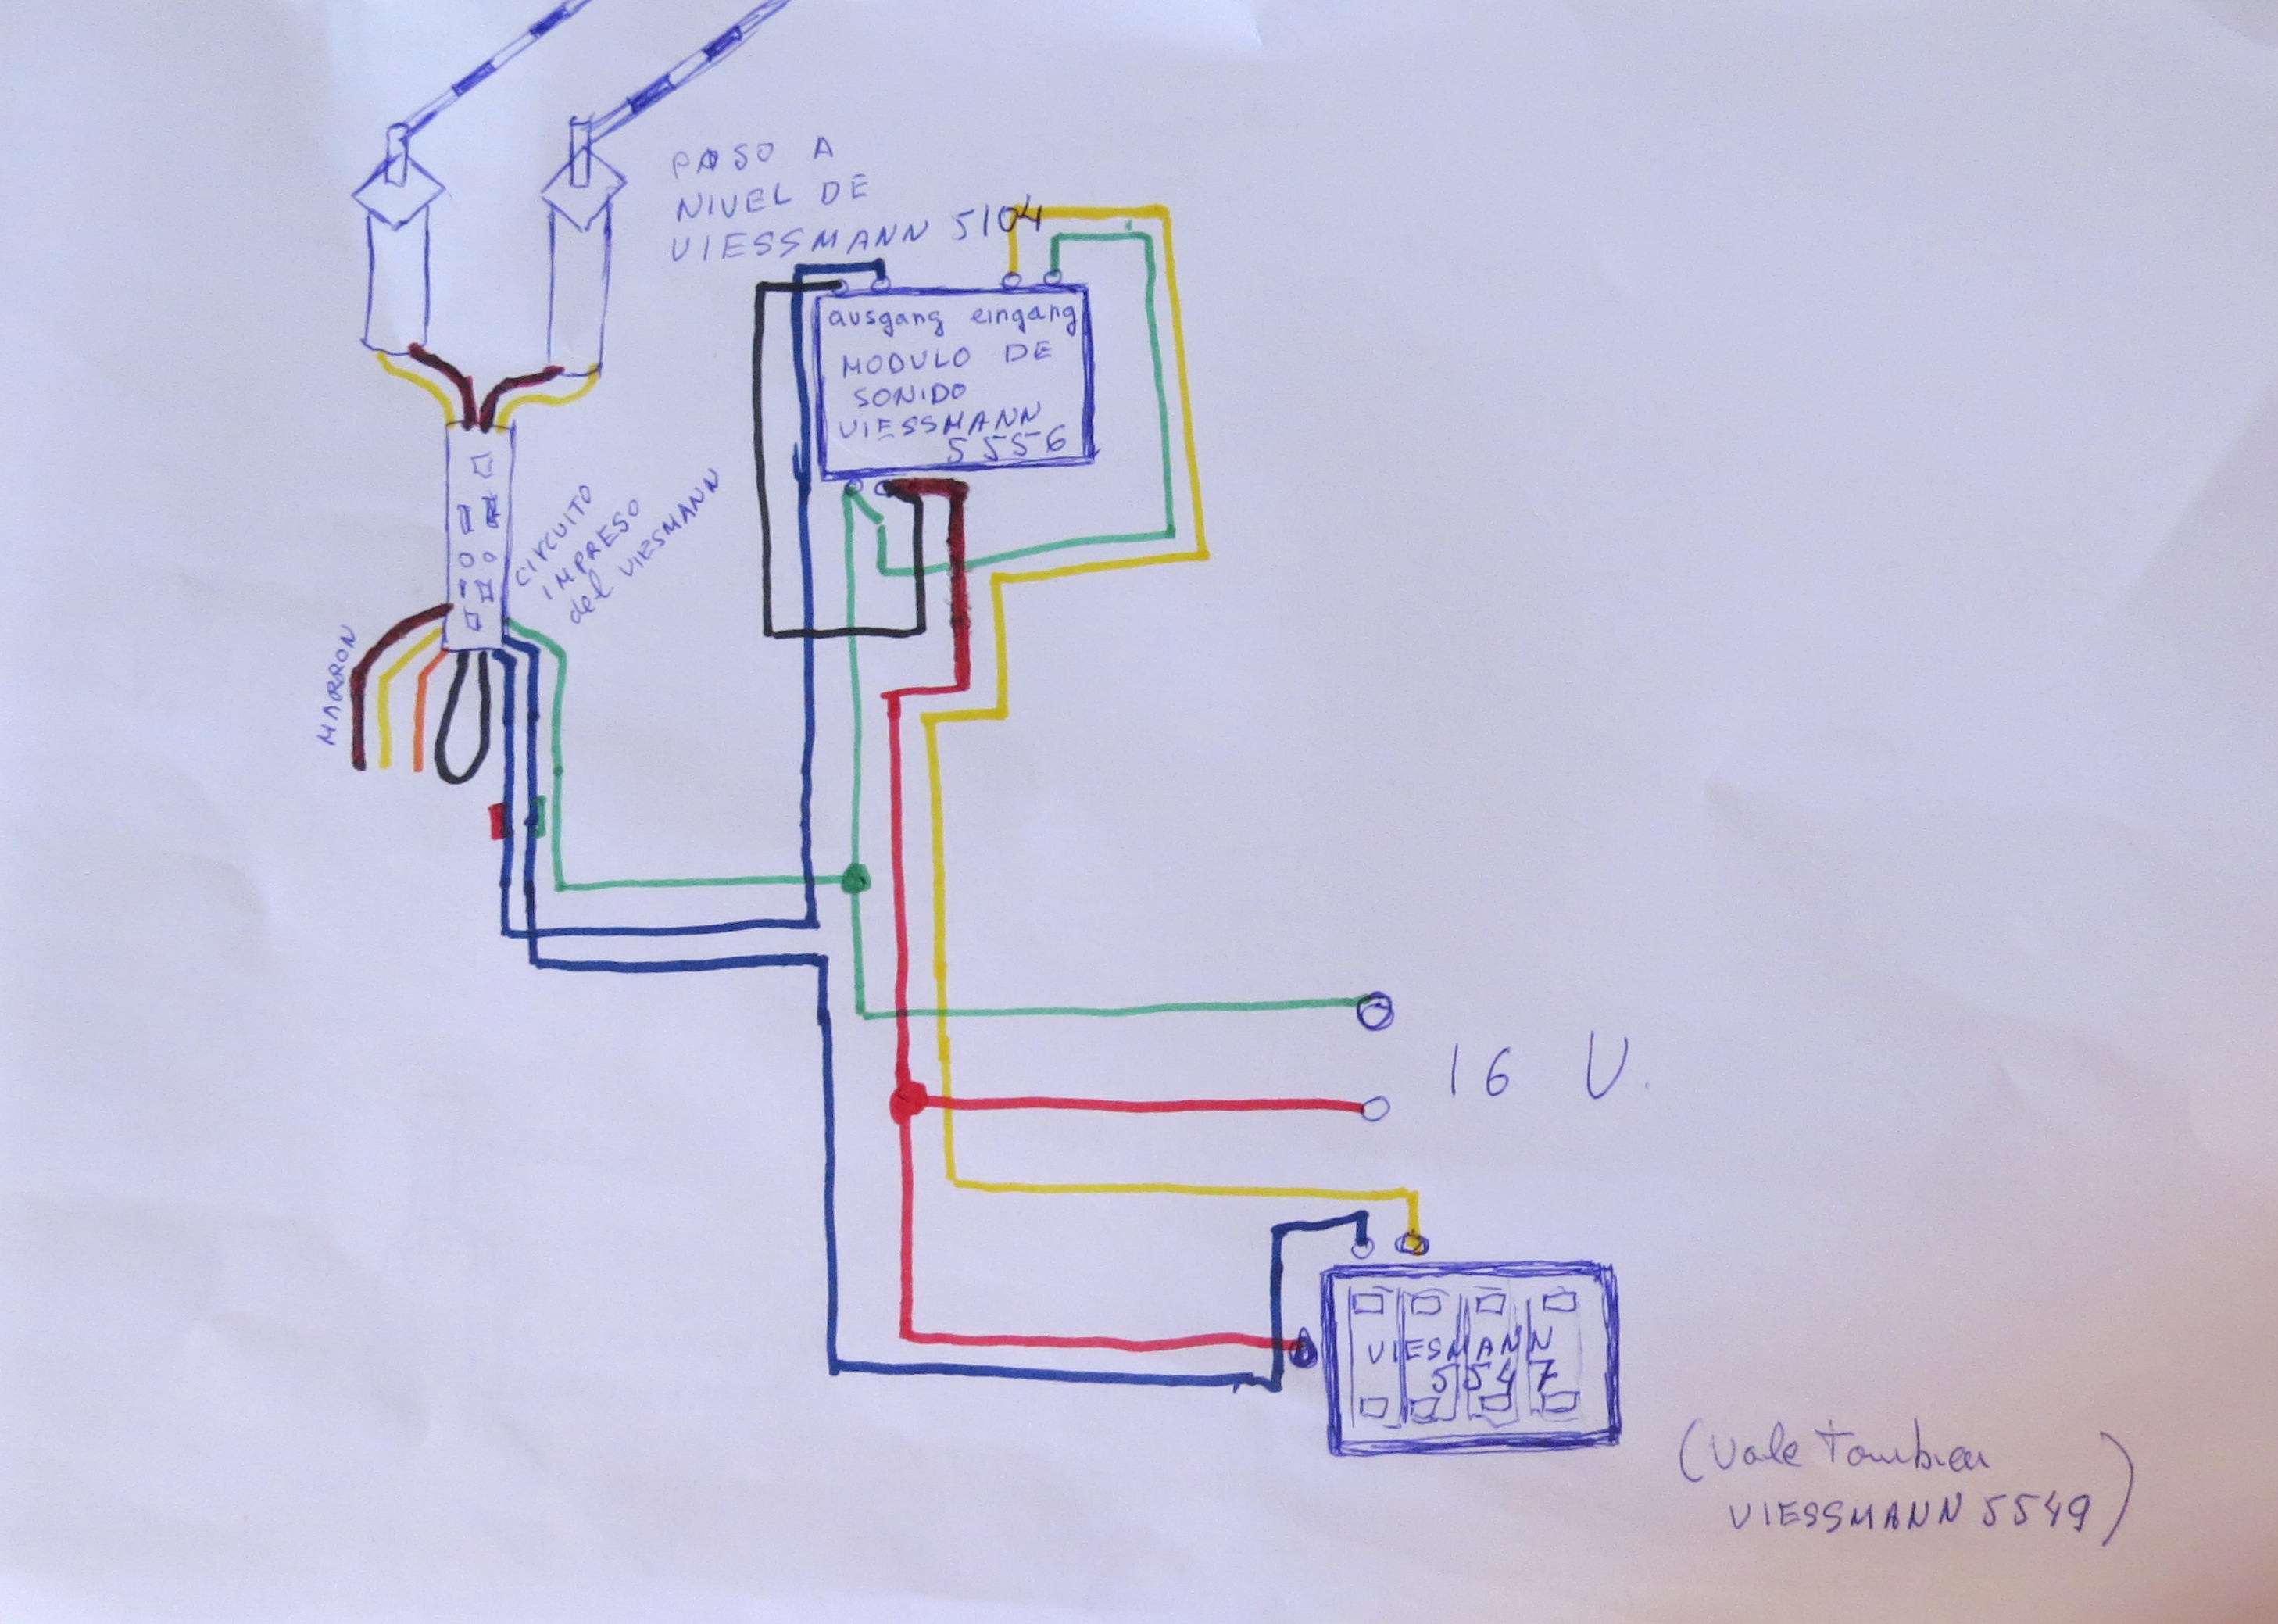 PASO A
NIVEL DE
VIESSMANN 5104
ausgang eingang
MODULO DE
SONIDO
VIESSMANN
5556
CIRCUITO
IMPRESO
del VIESMANN
MARRON
16 V.
VIESMANN
5547
(Vale tambien
VIESSMANN 5549)